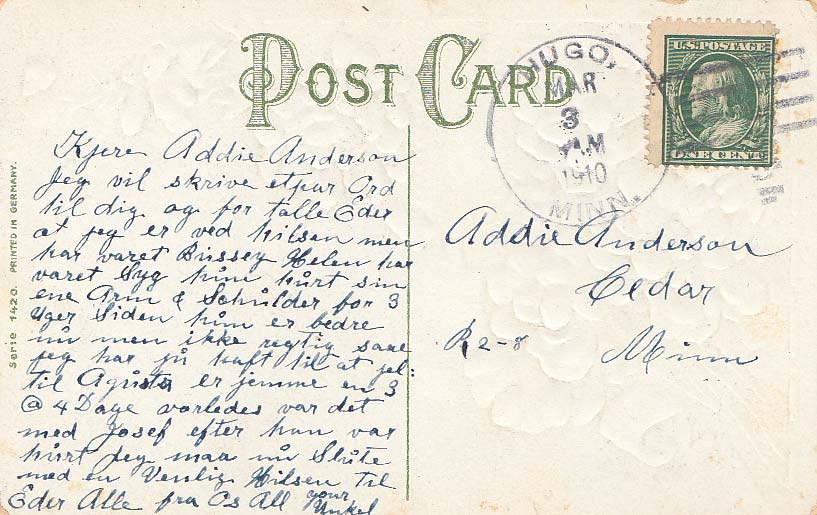 POST CARD
HUGO,
MAR
3
AM
1910
MINN.
U.S. POSTAGE
ONE CENT
Serie 1420. PRINTED IN GERMANY.
Kjere Addie Anderson
Jeg vil skrive etpar Ord
til dig og for talle Eder
at jeg er ved hilsen men
har varet Bussey Helen har
varet Syg hun hurt sin
ene Arm & Schulder for 3
Uger Siden hun er bedre
nu men ikke regtig saae
jeg har ju haft til at jel:
til Agusta er jemme en 3
@ 4 Dage vorledes var det
med Josef efter han var
hurt Jeg maa nu Slute
med en Venlig Hilsen til
Eder Alle fra Os All your
Unkel
Addie Anderson
Cedar
R 2-8
Minn